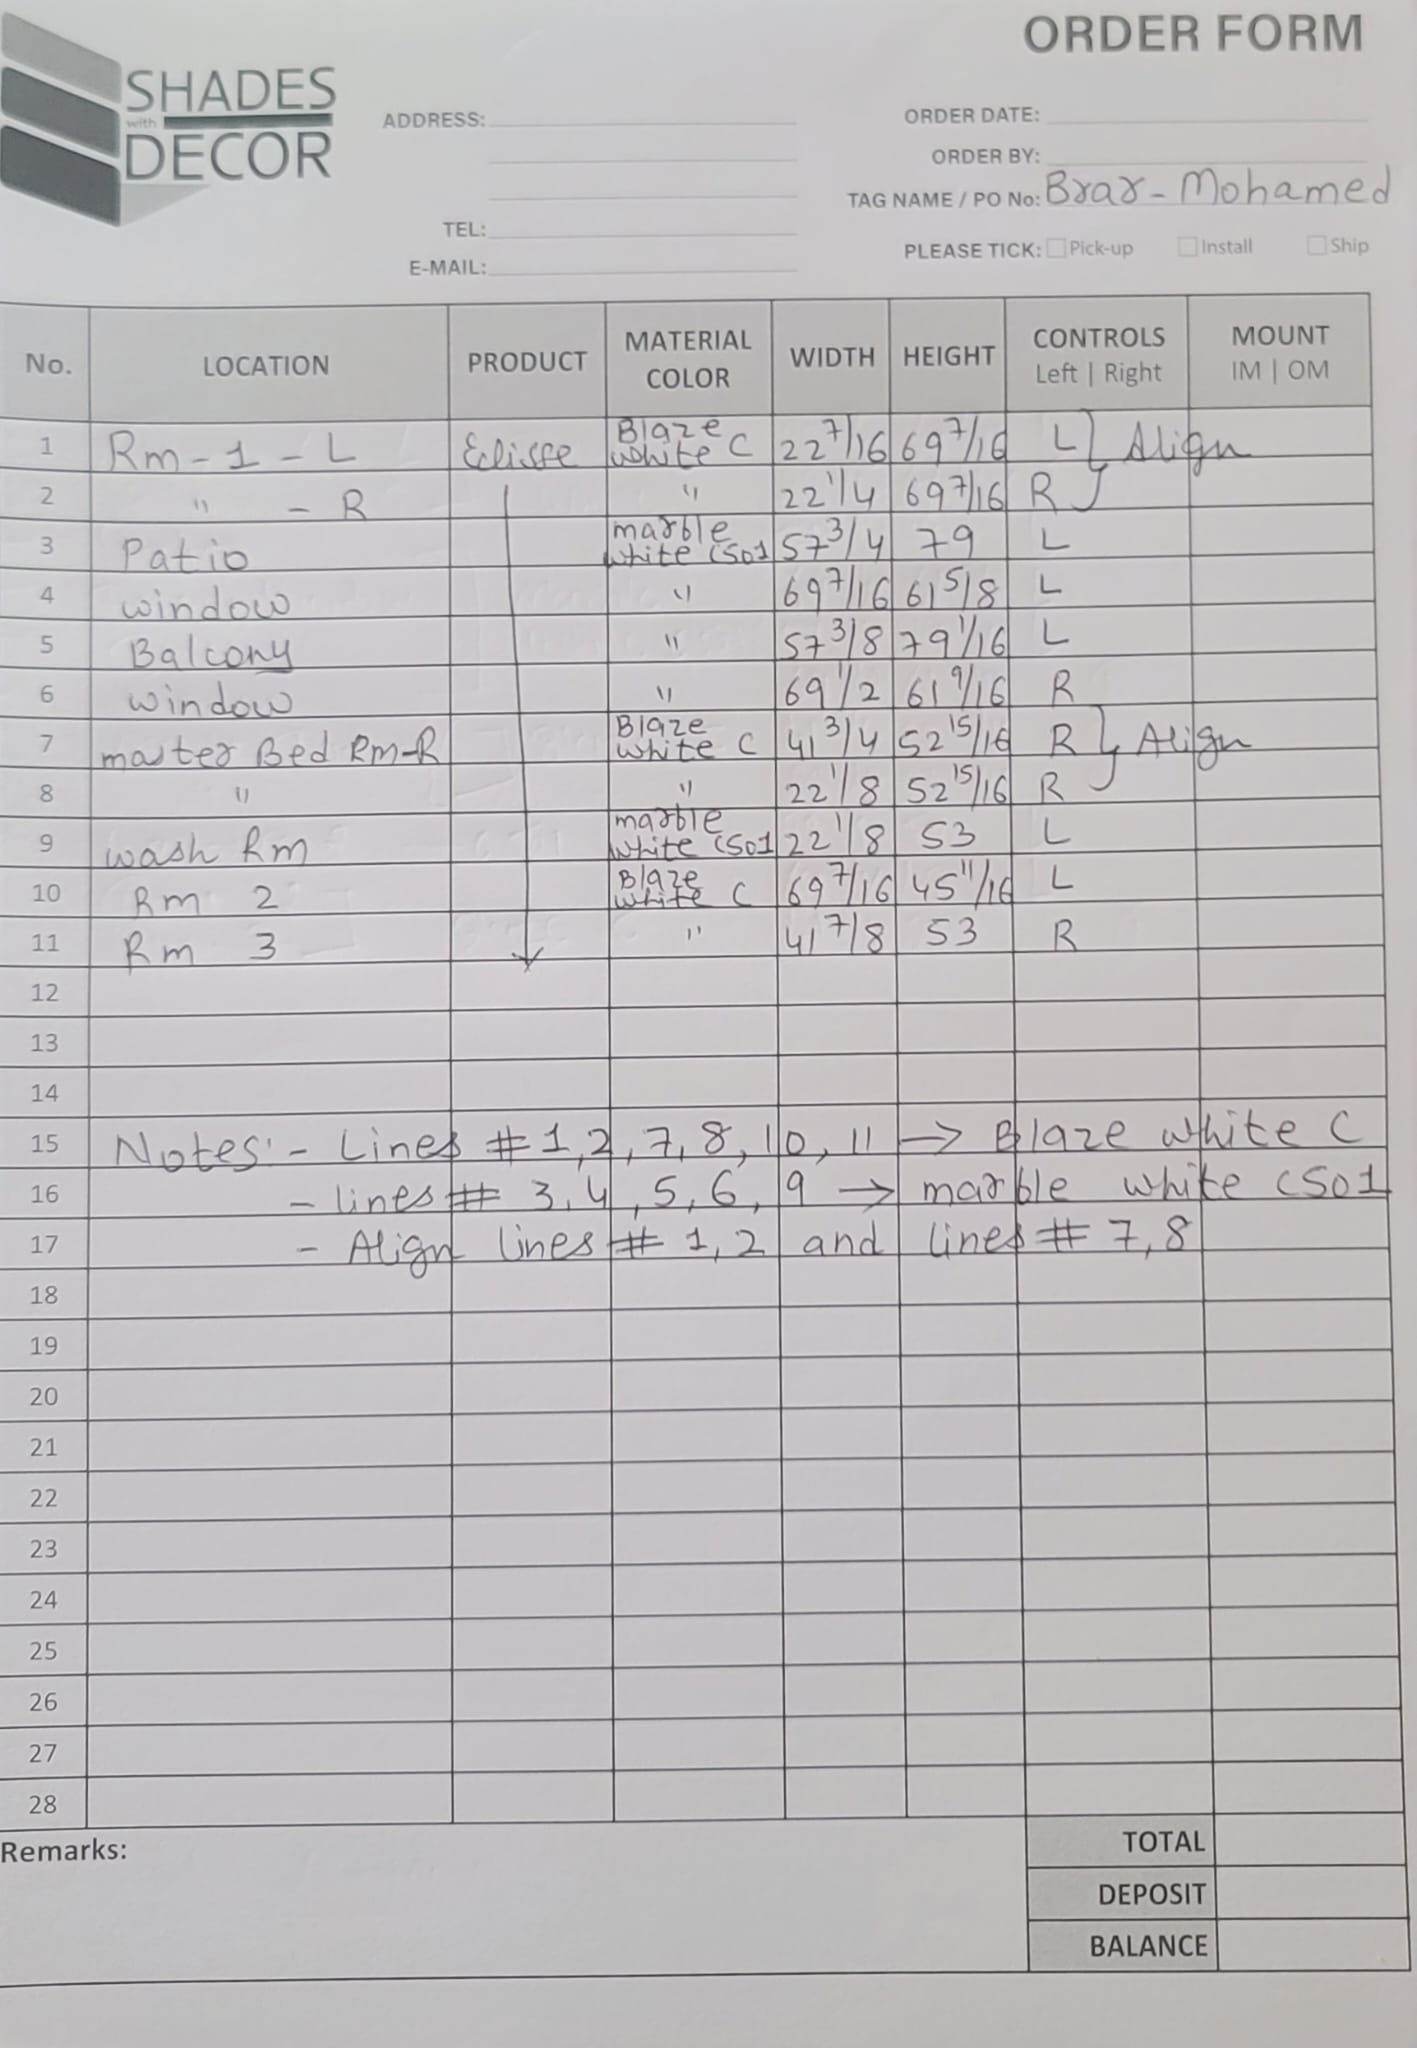 ORDER FORM
SHADES
with
DECOR
ADDRESS:
TEL:
E-MAIL:
ORDER DATE:
ORDER BY:
TAG NAME / PO No: Brar - Mohamed
PLEASE TICK: Pick-up Install Ship
No. LOCATION PRODUCT MATERIAL COLOR WIDTH HEIGHT CONTROLS Left | Right MOUNT IM | OM
1 Rm - 1 - L Eclisse Blaze white C 22 7/16 69 7/16 L Align
2 " - R " 22 1/4 69 7/16 R
3 Patio marble white CS01 57 3/4 79 L
4 window " 69 7/16 61 5/8 L
5 Balcony " 57 3/8 79 1/16 L
6 window " 69 1/2 61 9/16 R
7 master Bed Rm-R Blaze white C 41 3/4 52 15/16 R Align
8 " " 22 1/8 52 15/16 R
9 wash Rm marble white CS01 22 1/8 53 L
10 Rm 2 Blaze white C 69 7/16 45 11/16 L
11 Rm 3 " 41 7/8 53 R
12
13
14
15 Notes:- Lines # 1,2,7,8,10,11 → Blaze white C
16 - lines # 3,4,5,6,9 → marble white CS01
17 - Align lines # 1,2 and lines # 7,8
18
19
20
21
22
23
24
25
26
27
28
Remarks:
TOTAL
DEPOSIT
BALANCE